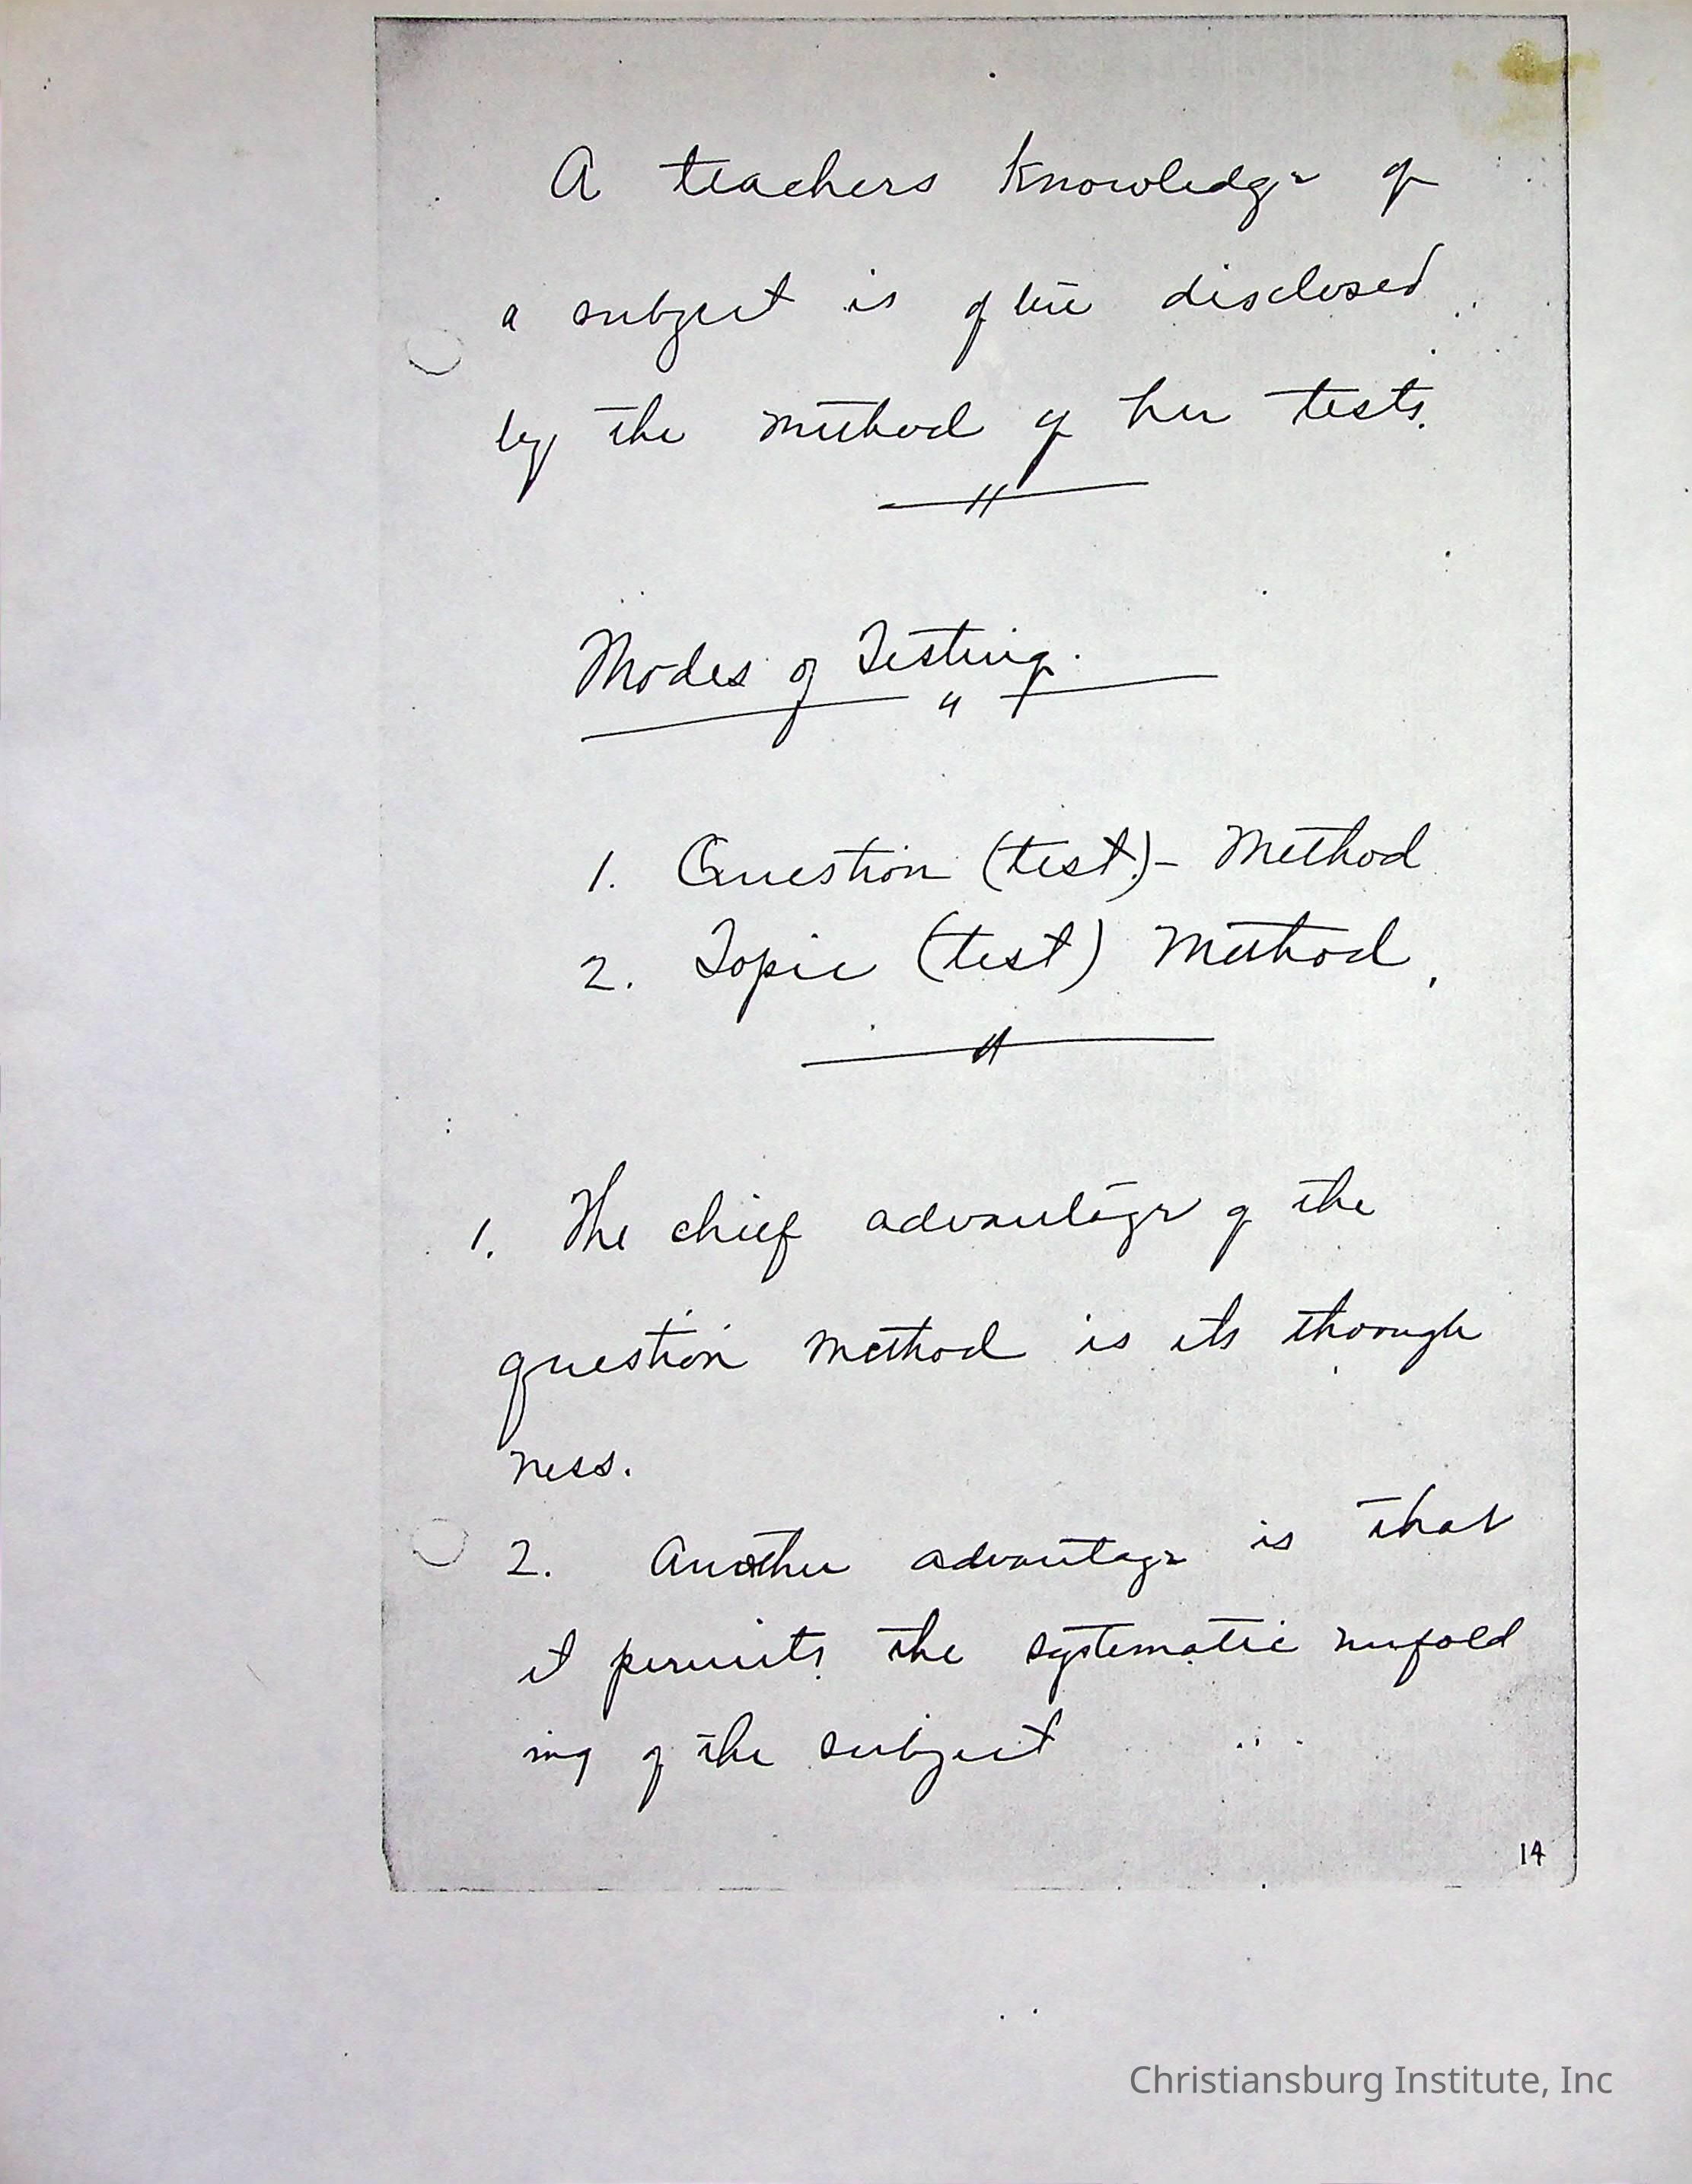 A teachers knowledge of
a subject is often disclosed
by the method of her tests.
Modes of Testing.
1. Question (test) - Method
2. Topic (test) Method.
1. The chief advantage of the
question method is its thorough
ness.
2. Another advantage is that
it permits the systematic unfold
ing of the subject
14
Christiansburg Institute, Inc